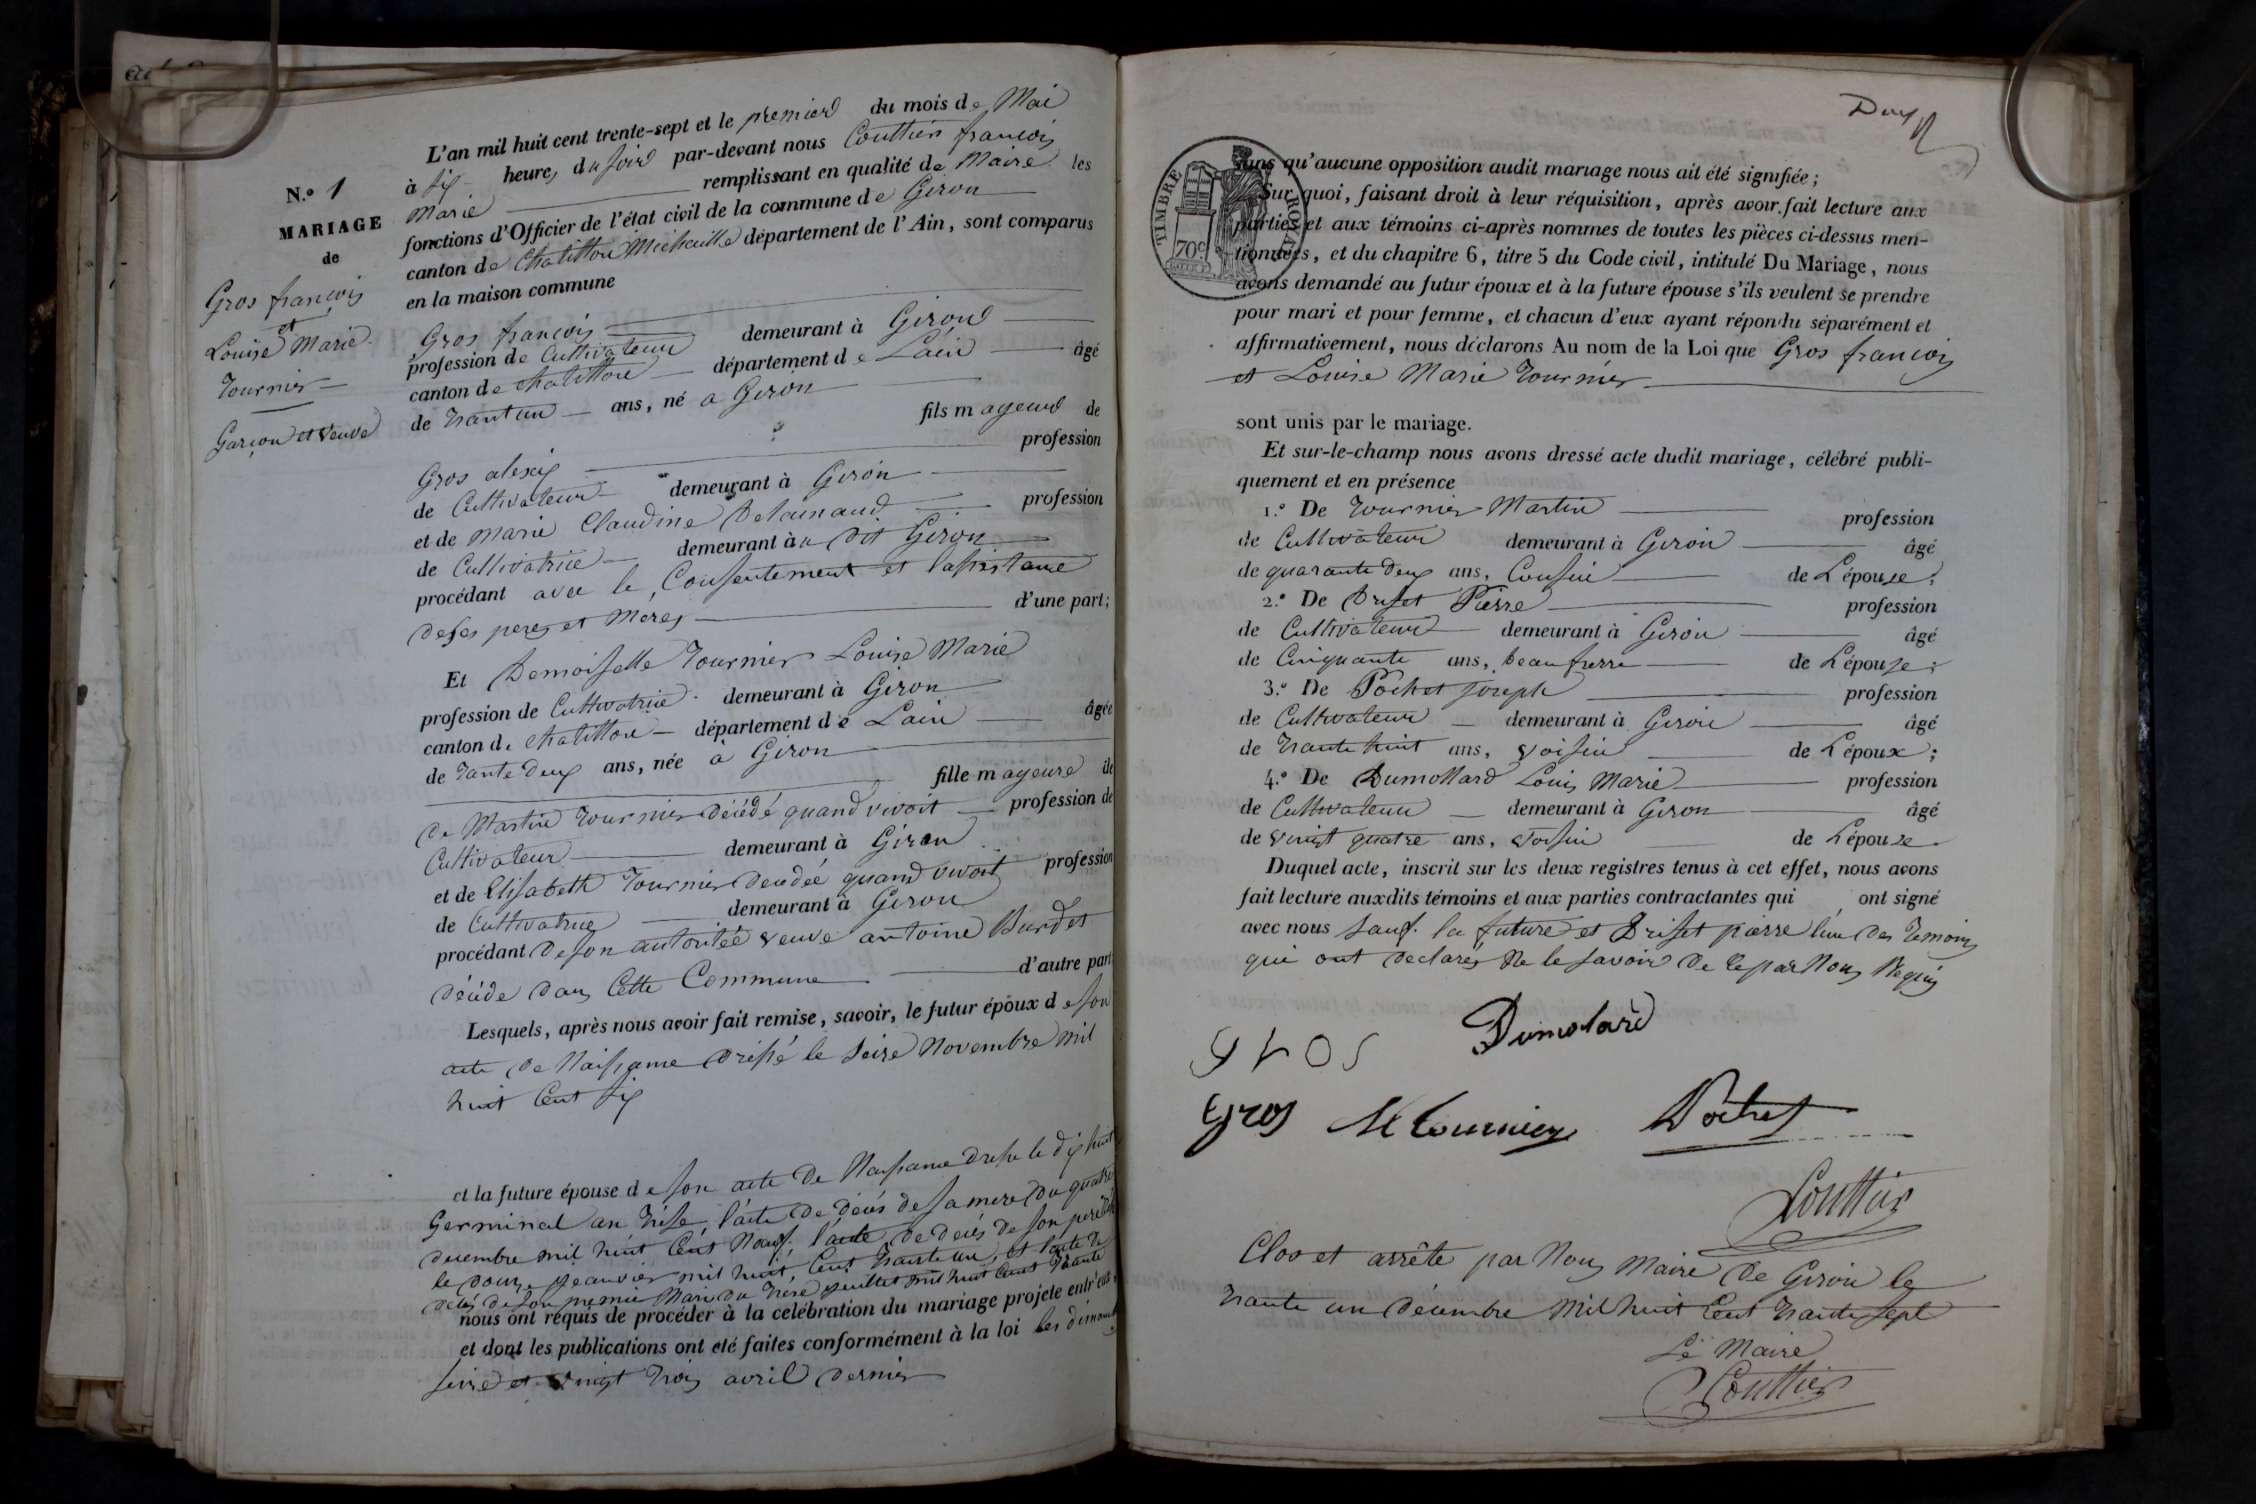 N.º 1
MARIAGE
de
Gros françois
et
Louise Marie
Tournier
Garçon et veuve
L'an mil huit cent trente-sept et le premier du mois de Mai
à six heures du soir par-devant nous Couttier françois
Marie remplissant en qualité de Maire les
fonctions d'Officier de l'état civil de la commune de Giron
canton de Chatillon Michaille département de l'Ain, sont comparus
en la maison commune
Gros françois
profession de Cultivateur demeurant à Giron
canton de Chatillon département de Lain âgé
de trantun ans, né a Giron
fils mageur de
Gros alexis profession
de Cultivateur demeurant à Giron
et de Marie Claudine profession
de Cultivatrice demeurant à u dit Giron
procédant avec le Consentement et lasistance
de ses peres et Meres d'une part;
Et Demoiselle Tournier Louise Marie
profession de Cultivatrice demeurant à Giron
canton de Chatillon département de Lain âgée
de tante deux ans, née à Giron
fille mageure de
de Martin Tournier décédé quand vivoit profession de
Cultivateur demeurant à Giron
et de Elisabeth Tournier decédée quand vivoit profession
de Cultivatrice demeurant à Giron
procédant de son autoritée veuve antoine Burdet
décéde dans Cette Commune d'autre part
Lesquels, après nous avoir fait remise, savoir, le futur époux de son
acte de Naissance dréssé le seize Novembre mil
huit Cent six
et la future épouse de son acte de Naissance dressé le dix huit
Germinal an treise, l'acte de décés de sa mere du quatre
decembre mil huit Cent Neuf, l'acte de decés de son pere
le douze jeanvier mil huit Cent trante un, et l'acte de
décés de son premier Mari du treise juillet mil huit Cent trante
nous ont requis de procéder à la célébration du mariage projeté entr'eux
et dont les publications ont été faites conformément à la loi les dimanches
seize et vingt trois avril dernier
Deux
TIMBRE ROYAL
70 c
sans qu'aucune opposition audit mariage nous ait été signifiée;
Sur quoi, faisant droit à leur réquisition, après avoir fait lecture aux
parties et aux témoins ci-après nommés de toutes les pièces ci-dessus men-
tionnées, et du chapitre 6, titre 5 du Code civil, intitulé Du Mariage, nous
avons demandé au futur époux et à la future épouse s'ils veulent se prendre
pour mari et pour femme, et chacun d'eux ayant répondu séparément et
affirmativement, nous déclarons Au nom de la Loi que Gros françois
et Louise Marie Tournier
sont unis par le mariage.
Et sur-le-champ nous avons dressé acte dudit mariage, célébré publi-
quement et en présence
1.º De Tournier Martin profession
de Cultivateur demeurant à Giron âgé
de quarante deux ans, Cousin de L'épouse;
2.º De Brifet Pierre profession
de Cultivateur demeurant à Giron âgé
de Cinquante ans, beau frerre de L'épouse;
3.º De Pochet joseph profession
de Cultivateur demeurant à Giron âgé
de trante huit ans, voisin de L'époux;
4.º De Dumollard Louis Marie profession
de Cultivateur demeurant à Giron âgé
de vingt quatre ans, voisin de L'épouse.
Duquel acte, inscrit sur les deux registres tenus à cet effet, nous avons
fait lecture auxdits témoins et aux parties contractantes qui ont signé
avec nous sauf la future et Brifet pierre l'un des temoins
qui ont declarés Ne le savoir de ce par Nous Requis
Dumolard
gros
Gros M Tournier Pochet
Couttier
Clos et arrête par Nous Maire de Giron le
trante un décembre Mil huit Cent trante sept
Le Maire
Couttier